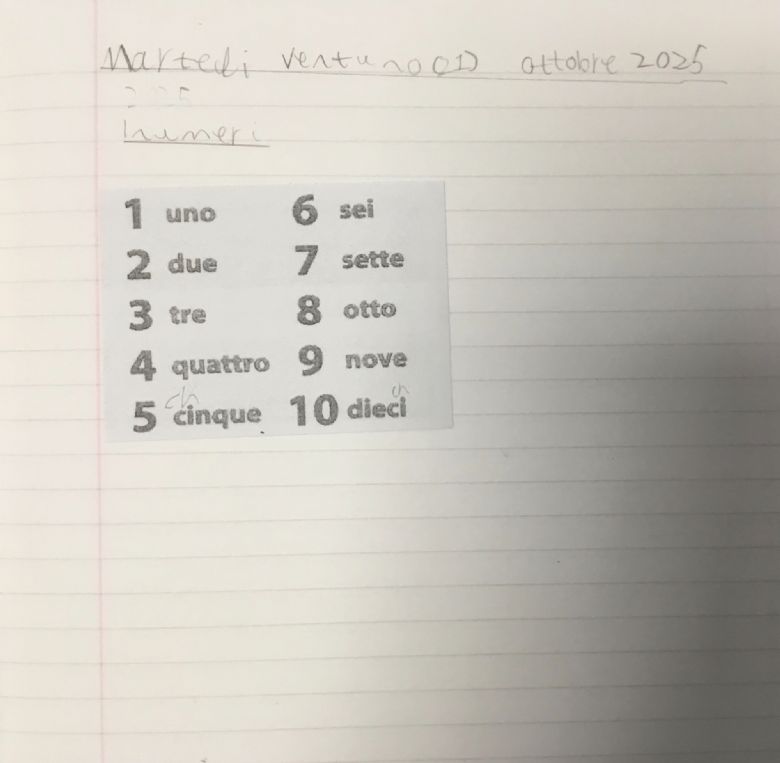 Martedi ventuno (21) ottobre 2025
I numeri
1 uno 6 sei
2 due 7 sette
3 tre 8 otto
4 quattro 9 nove
ch ch
5 cinque 10 dieci